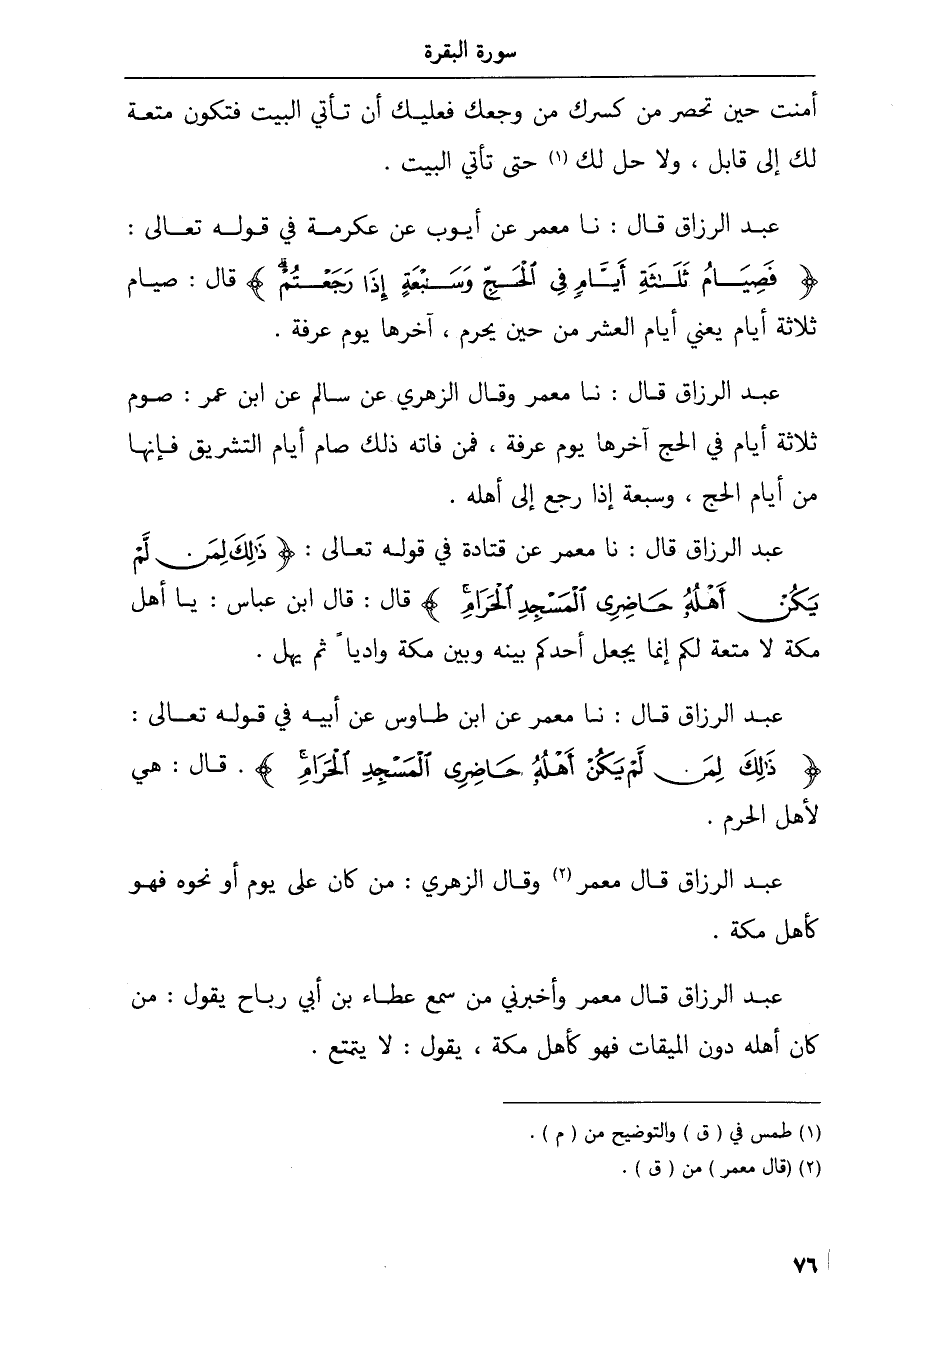 سورة البقرة
أمنت حين تحصر من كسرك من وجعك فعليك أن تأتي البيت فتكون متعة
لك إلى قابل ، ولا حل لك (١) حتى تأتي البيت .
عبد الرزاق قال : نا معمر عن أيوب عن عكرمة في قوله تعالى :
﴿ فَصِيَامُ ثَلَٰثَةِ أَيَّامٍ فِي ٱلْحَجِّ وَسَبْعَةٍ إِذَا رَجَعْتُمْ ﴾ قال : صيام
ثلاثة أيام يعني أيام العشر من حين يحرم ، آخرها يوم عرفة .
عبد الرزاق قال : نا معمر وقال الزهري عن سالم عن ابن عمر : صوم
ثلاثة أيام في الحج آخرها يوم عرفة ، فمن فاته ذلك صام أيام التشريق فإنها
من أيام الحج ، وسبعة إذا رجع إلى أهله .
عبد الرزاق قال : نا معمر عن قتادة في قوله تعالى : ﴿ ذَٰلِكَ لِمَن لَّمْ
يَكُنْ أَهْلُهُۥ حَاضِرِى ٱلْمَسْجِدِ ٱلْحَرَامِ ﴾ قال : قال ابن عباس : يا أهل
مكة لا متعة لكم إنما يجعل أحدكم بينه وبين مكة وادياً ثم يهل .
عبد الرزاق قال : نا معمر عن ابن طاوس عن أبيه في قوله تعالى :
﴿ ذَٰلِكَ لِمَن لَّمْ يَكُنْ أَهْلُهُۥ حَاضِرِى ٱلْمَسْجِدِ ٱلْحَرَامِ ﴾ . قال : هي
لأهل الحرم .
عبد الرزاق قال معمر (٢) وقال الزهري : من كان على يوم أو نحوه فهو
كأهل مكة .
عبد الرزاق قال معمر وأخبرني من سمع عطاء بن أبي رباح يقول : من
كان أهله دون الميقات فهو كأهل مكة ، يقول : لا يتمتع .
(١) طمس في ( ق ) والتوضيح من ( م ) .
(٢) (قال معمر ) من ( ق ) .
٧٦